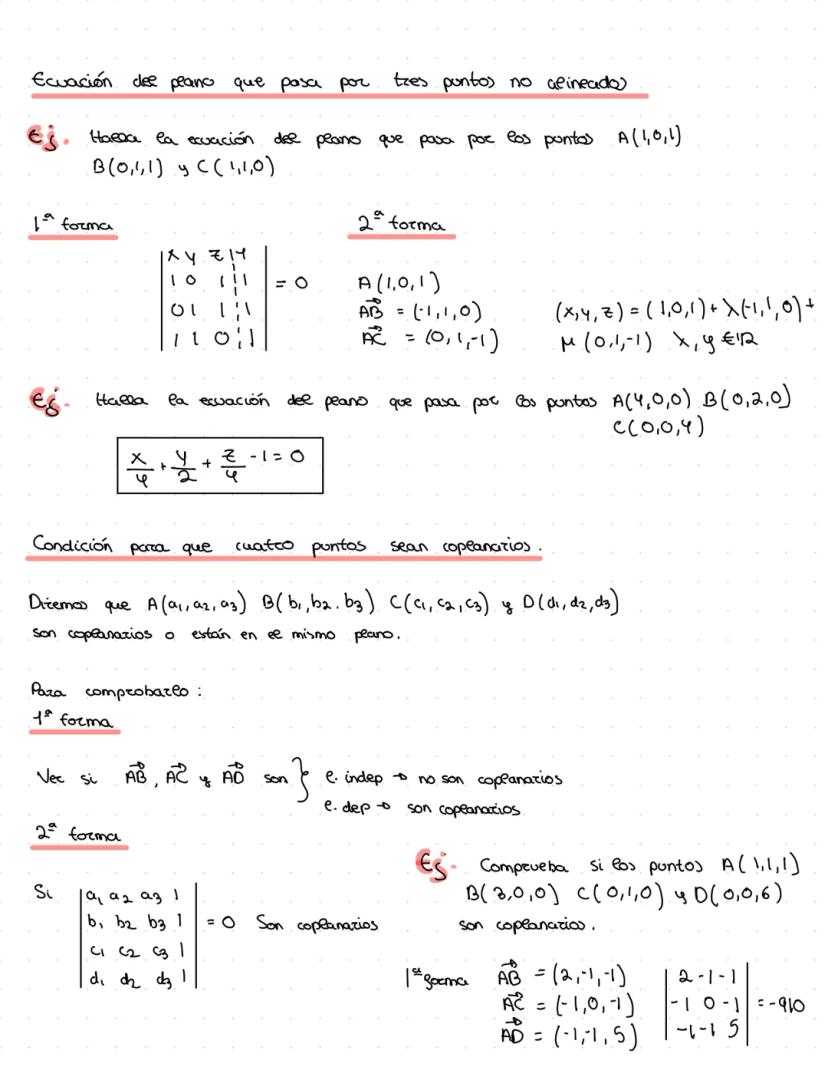 Ecuación del plano que pasa por tres puntos no alineados
Ej. Halla la ecuación del plano que pasa por los puntos A(1,0,1)
B(0,1,1) y C(1,1,0)
1ª forma
2ª forma
| x y z 1 |
| 1 0 1 1 | = 0
| 0 1 1 1 |
| 1 1 0 1 |
A(1,0,1)
AB = (-1,1,0)
AC = (0,1,-1)
(x,y,z) = (1,0,1) + λ(-1,1,0) +
μ(0,1,-1) λ,y ∈ ℝ
Ej. Halla la ecuación del plano que pasa por los puntos A(4,0,0) B(0,2,0)
C(0,0,4)
x/4 + y/2 + z/4 - 1 = 0
Condición para que cuatro puntos sean coplanarios.
Diremos que A(a₁,a₂,a₃) B(b₁,b₂.b₃) C(c₁,c₂,c₃) y D(d₁,d₂,d₃)
son coplanarios o están en el mismo plano.
Para comprobarlo:
1ª forma
Ver si AB, AC y AD son } l. indep → no son coplanarios
l. dep → son coplanarios
2ª forma
Si | a₁ a₂ a₃ 1 |
| b₁ b₂ b₃ 1 | = 0 Son coplanarios
| c₁ c₂ c₃ 1 |
| d₁ d₂ d₃ 1 |
Ej. Comprueba si los puntos A(1,1,1)
B(3,0,0) C(0,1,0) y D(0,0,6)
son coplanarios.
1ª forma AB = (2,-1,-1)
AC = (-1,0,-1)
AD = (-1,-1,5)
| 2 -1 -1 |
| -1 0 -1 |
| -1 -1 5 |